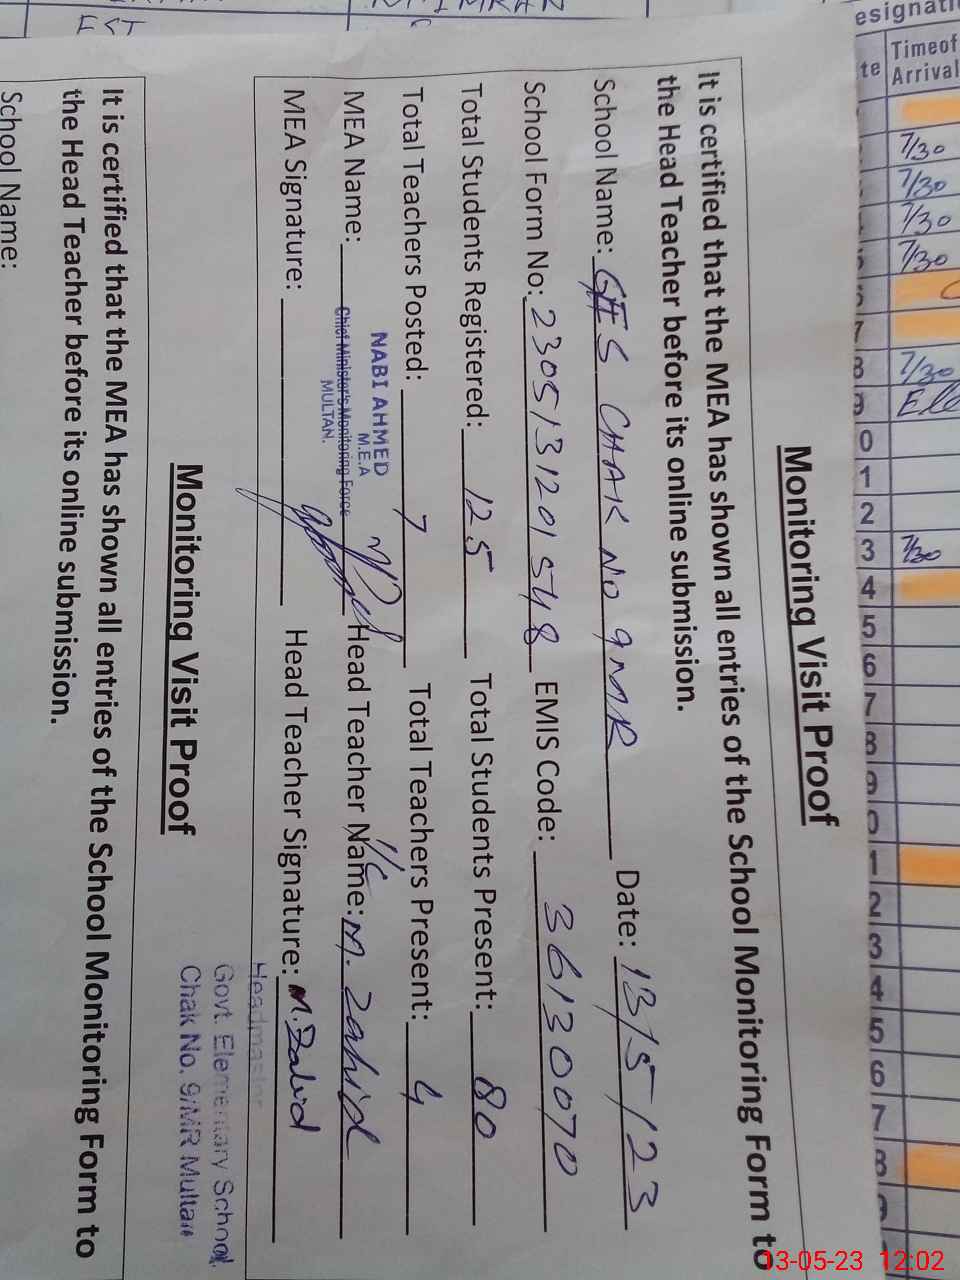 Monitoring Visit Proof
It is certified that the MEA has shown all entries of the School Monitoring Form to
the Head Teacher before its online submission.
School Name: GES CHAK NO 9 MR Date: 13/5/23
School Form No: 2305131201548 EMIS Code: 36130070
Total Students Registered: 125 Total Students Present: 80
Total Teachers Posted: 7 Total Teachers Present: 4
NABI AHMED
M.E.A
Chief Minister's Monitoring Force
MULTAN.
MEA Name: Head Teacher Name: I/C M. Zahid
MEA Signature: Head Teacher Signature: M. Zahid
Headmaster
Govt. Elementary School
Chak No. 9/MR Multan
Monitoring Visit Proof
It is certified that the MEA has shown all entries of the School Monitoring Form to
the Head Teacher before its online submission.
School Name:
EST
esignati
te
Timeof
Arrival
7/30
7/30
7/30
7/30
7
8 7/30
9
0
1
2
3 7/30
4
5
6
7
8
9
0
1
2
3
4
5
6
7
8
13-05-23 12:02